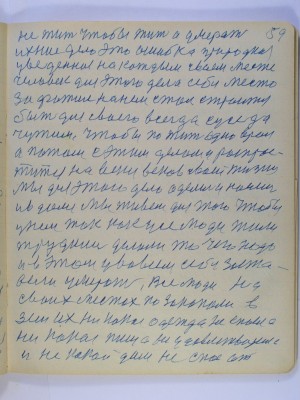 59
не тит чтобы тит а умерат
их ние дело это ошибка природной
уведенная на каждым своем месте
человек для этого дела себя место
За фитил ранен стал строится
быт для своего всегда суседа
чужим, чтобы пожит одно время
а потом с этим делом роспрос-
тится на веки веков своей жизни
Мы для этого дело одели и нажили
и в доми мы живем для того чтобы
у нем так как усе люди жили
трудни делали то чего надо
и в этом у вовсем себя заста-
вели умерат, Все люди на
своих местах по закопали в
земли их ни какая одежда не спасла
ни какая пища ни удовлетворила
и не какой дом не спас от